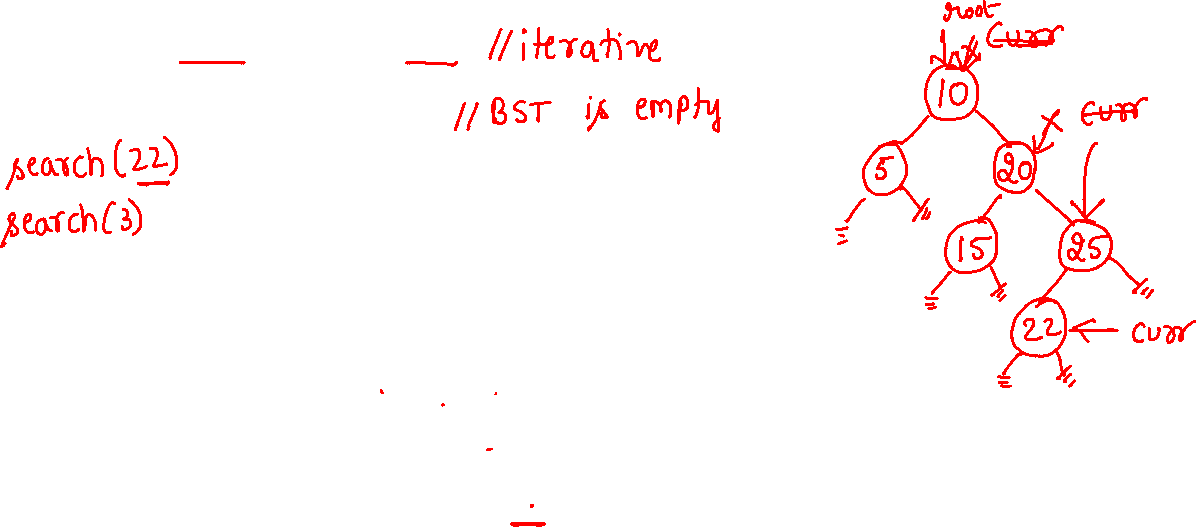 //iterative
//BST is empty
search(22)
search(3)
root
curr
10
curr
5
20
15
25
22
curr